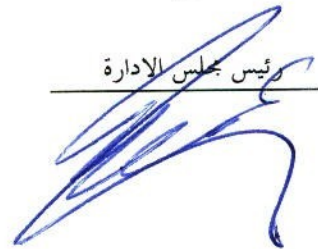 رئيس مجلس الادارة